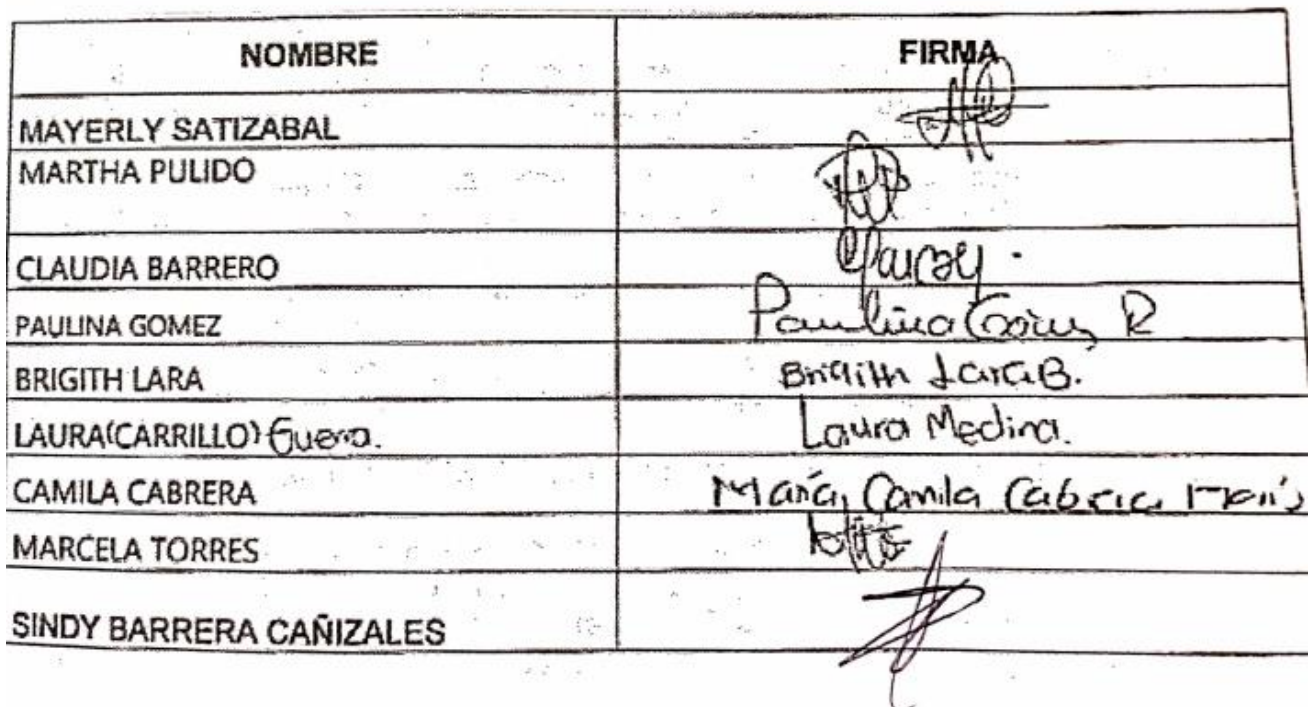 NOMBRE FIRMA
MAYERLY SATIZABAL
MARTHA PULIDO
CLAUDIA BARRERO
PAULINA GOMEZ Paulina Gómez R
BRIGITH LARA Brigith Lara B.
LAURA(CARRILLO) Laura Medina.
CAMILA CABRERA María Camila Cabrera
MARCELA TORRES
SINDY BARRERA CAÑIZALES